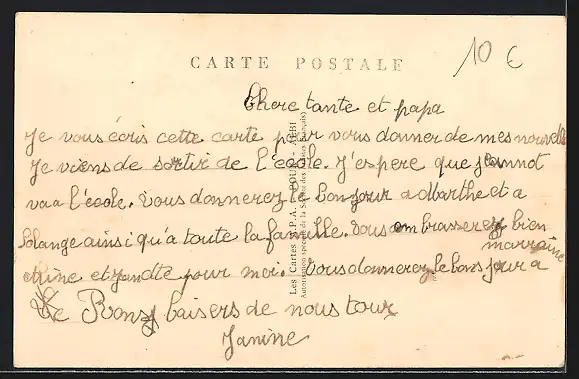 10 €
CARTE POSTALE
Chere tante et papa
Je vous écris cette carte pour vous donner de mes nouvelle
Je viens de sortir de l'école. J'espere que Jeannot
va a l'école. Vous donnerez le bonjour a Marthe et a
Solange ainsi qu'a toute la famille. Vous embrasserez bien
marraine
et pour moi. Vous donnerez le bonjour a
Bons baisers de nous tous
Janine
Les Cartes A.P.A. - POUX - ALBI
Autorisation spéciale de la Société des Artistes français)